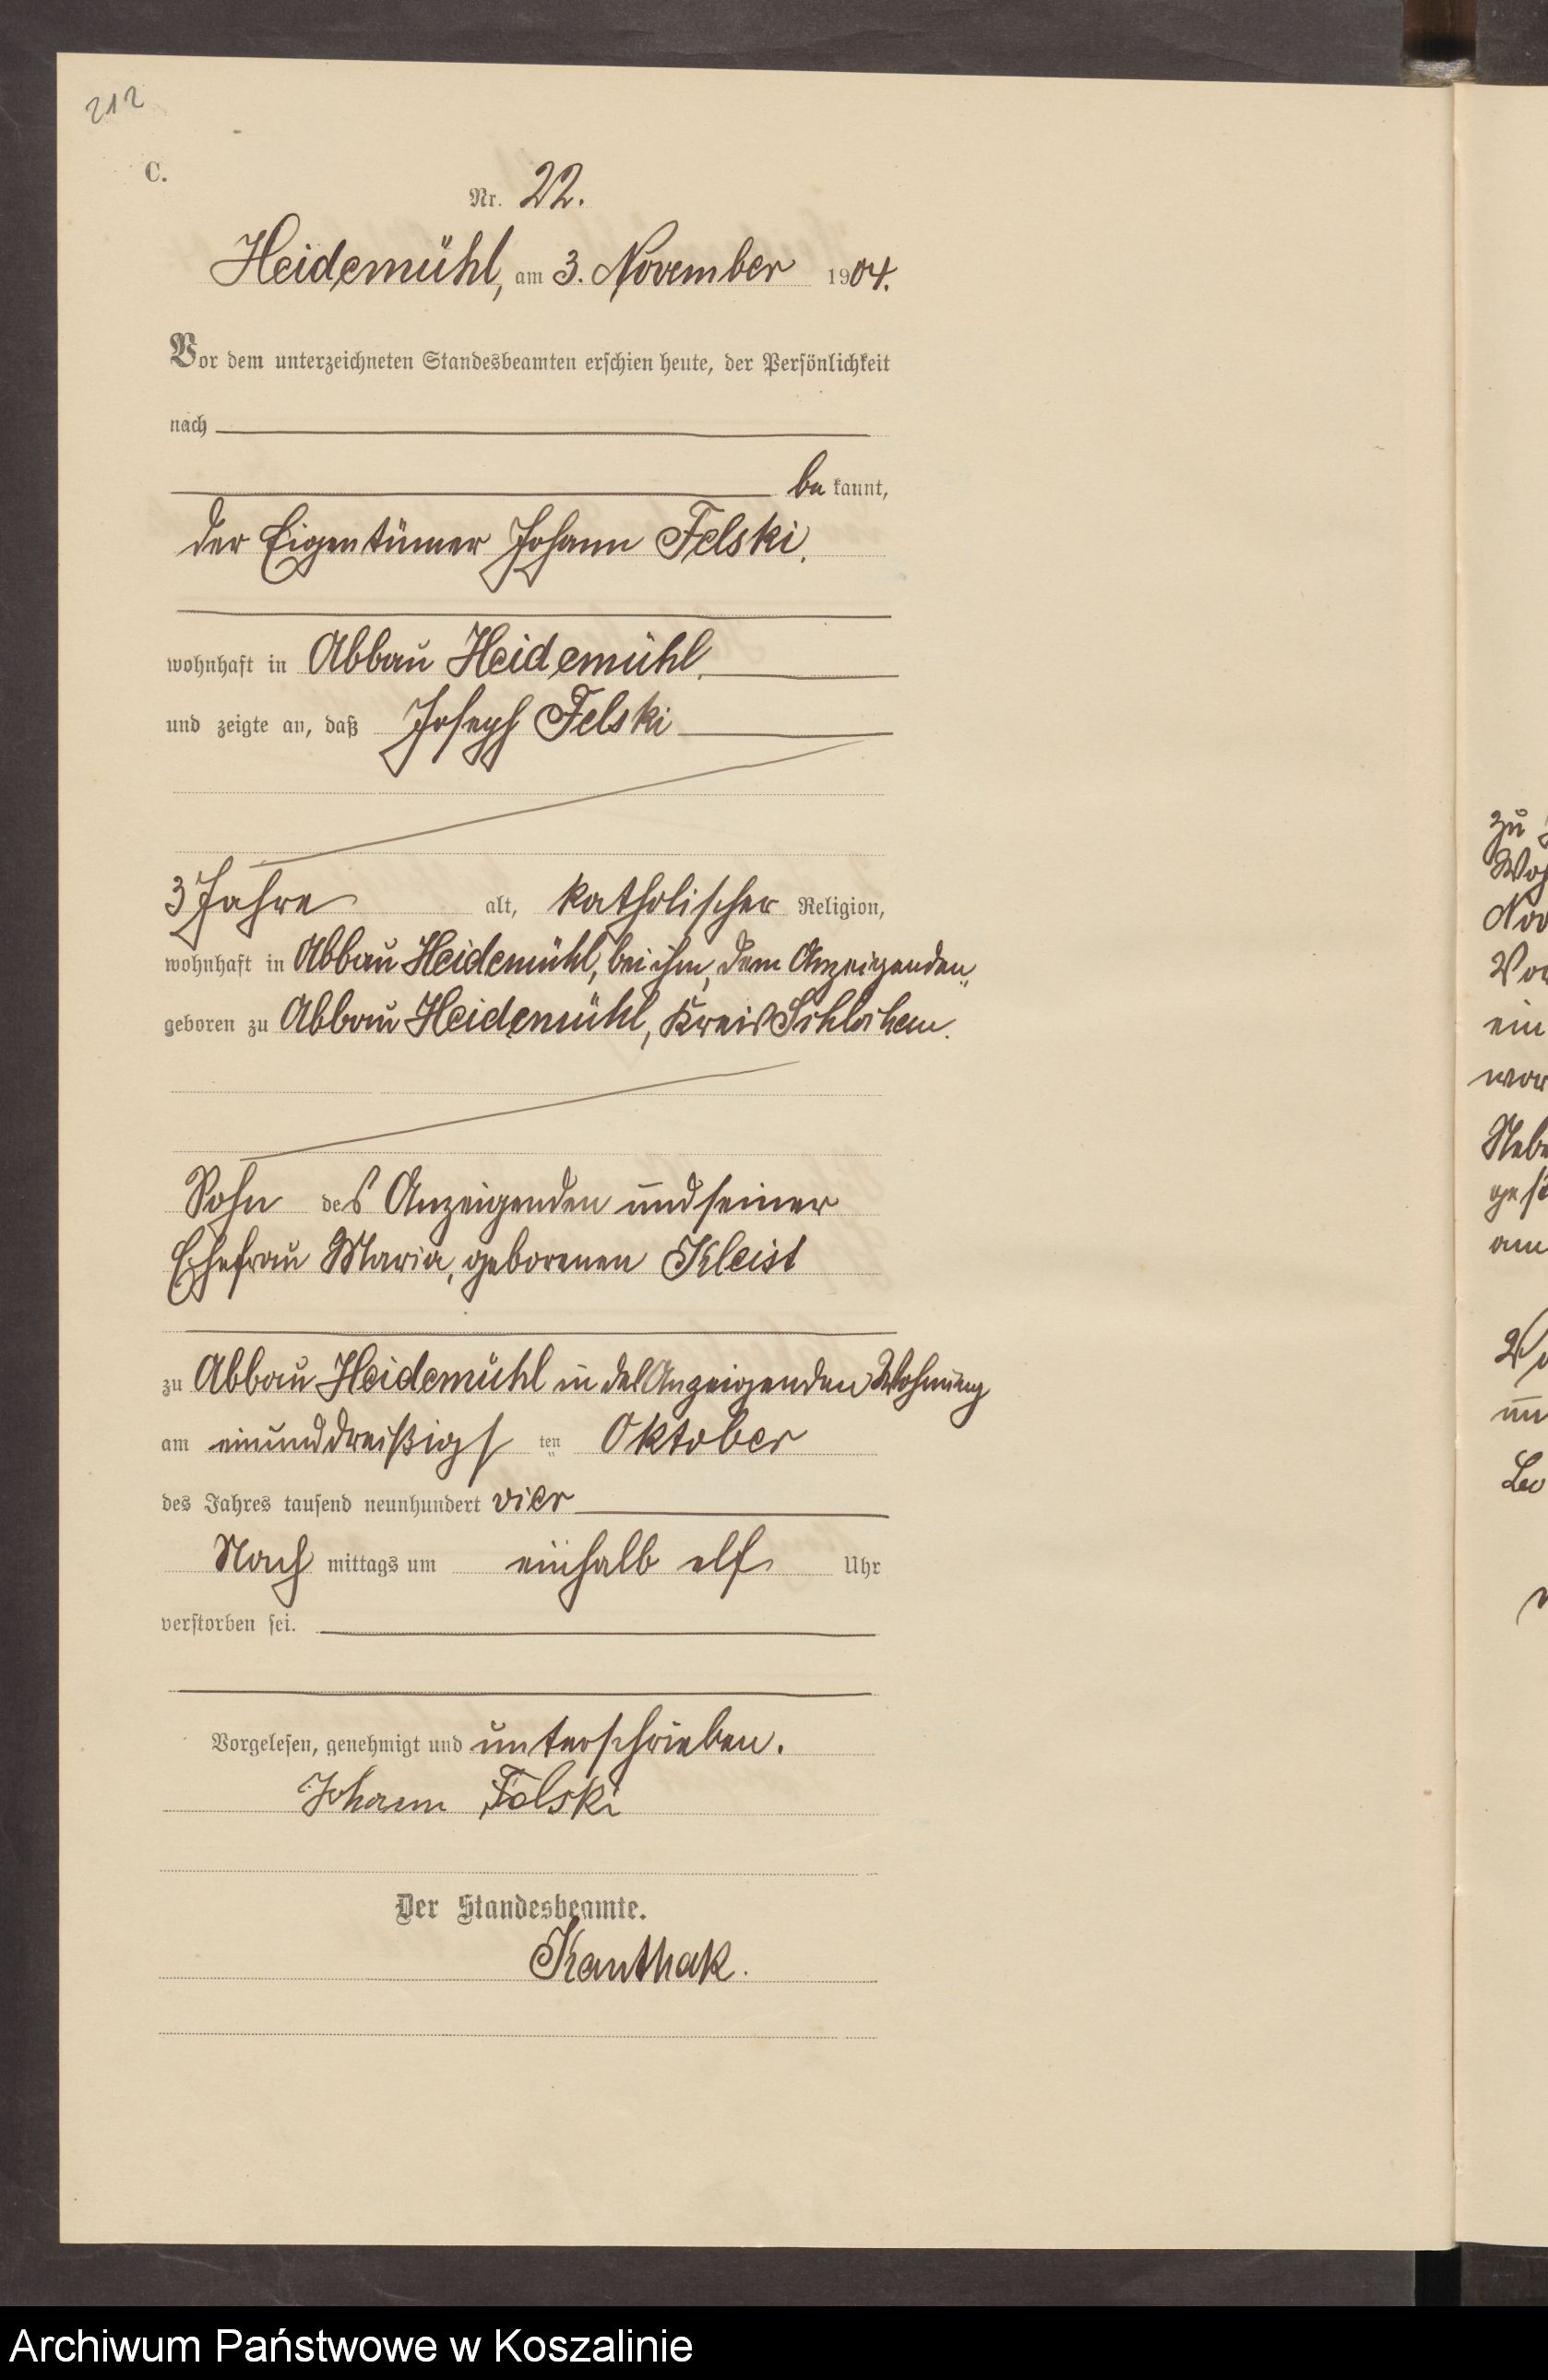 212
C.
Nr. 22.
Heidemühl, am 3. November 1904.
Vor dem unterzeichneten Standesbeamten erschien heute, der Persönlichkeit
nach
be kannt,
der Eigentümer Johann Felski,
wohnhaft in Abbau Heidemühl,
und zeigte an, daß Joseph Felski
3 Jahre alt, katholischer Religion,
wohnhaft in Abbau Heidemühl, bei ihm, dem Anzeigenden,
geboren zu Abbau Heidemühl, Kreis Schlochau.
Sohn des Anzeigenden und seiner
Ehefrau Maria, geborenen Kleist
zu Abbau Heidemühl in des Anzeigenden Wohnung
am einunddreißigs ten Oktober
des Jahres tausend neunhundert vier
Nach mittags um einhalb elf Uhr
verstorben sei.
Vorgelesen, genehmigt und unterschrieben.
Johann Felski
Der Standesbeamte.
Kanthak.
zu
Nov
ein
am
Archiwum Państwowe w Koszalinie